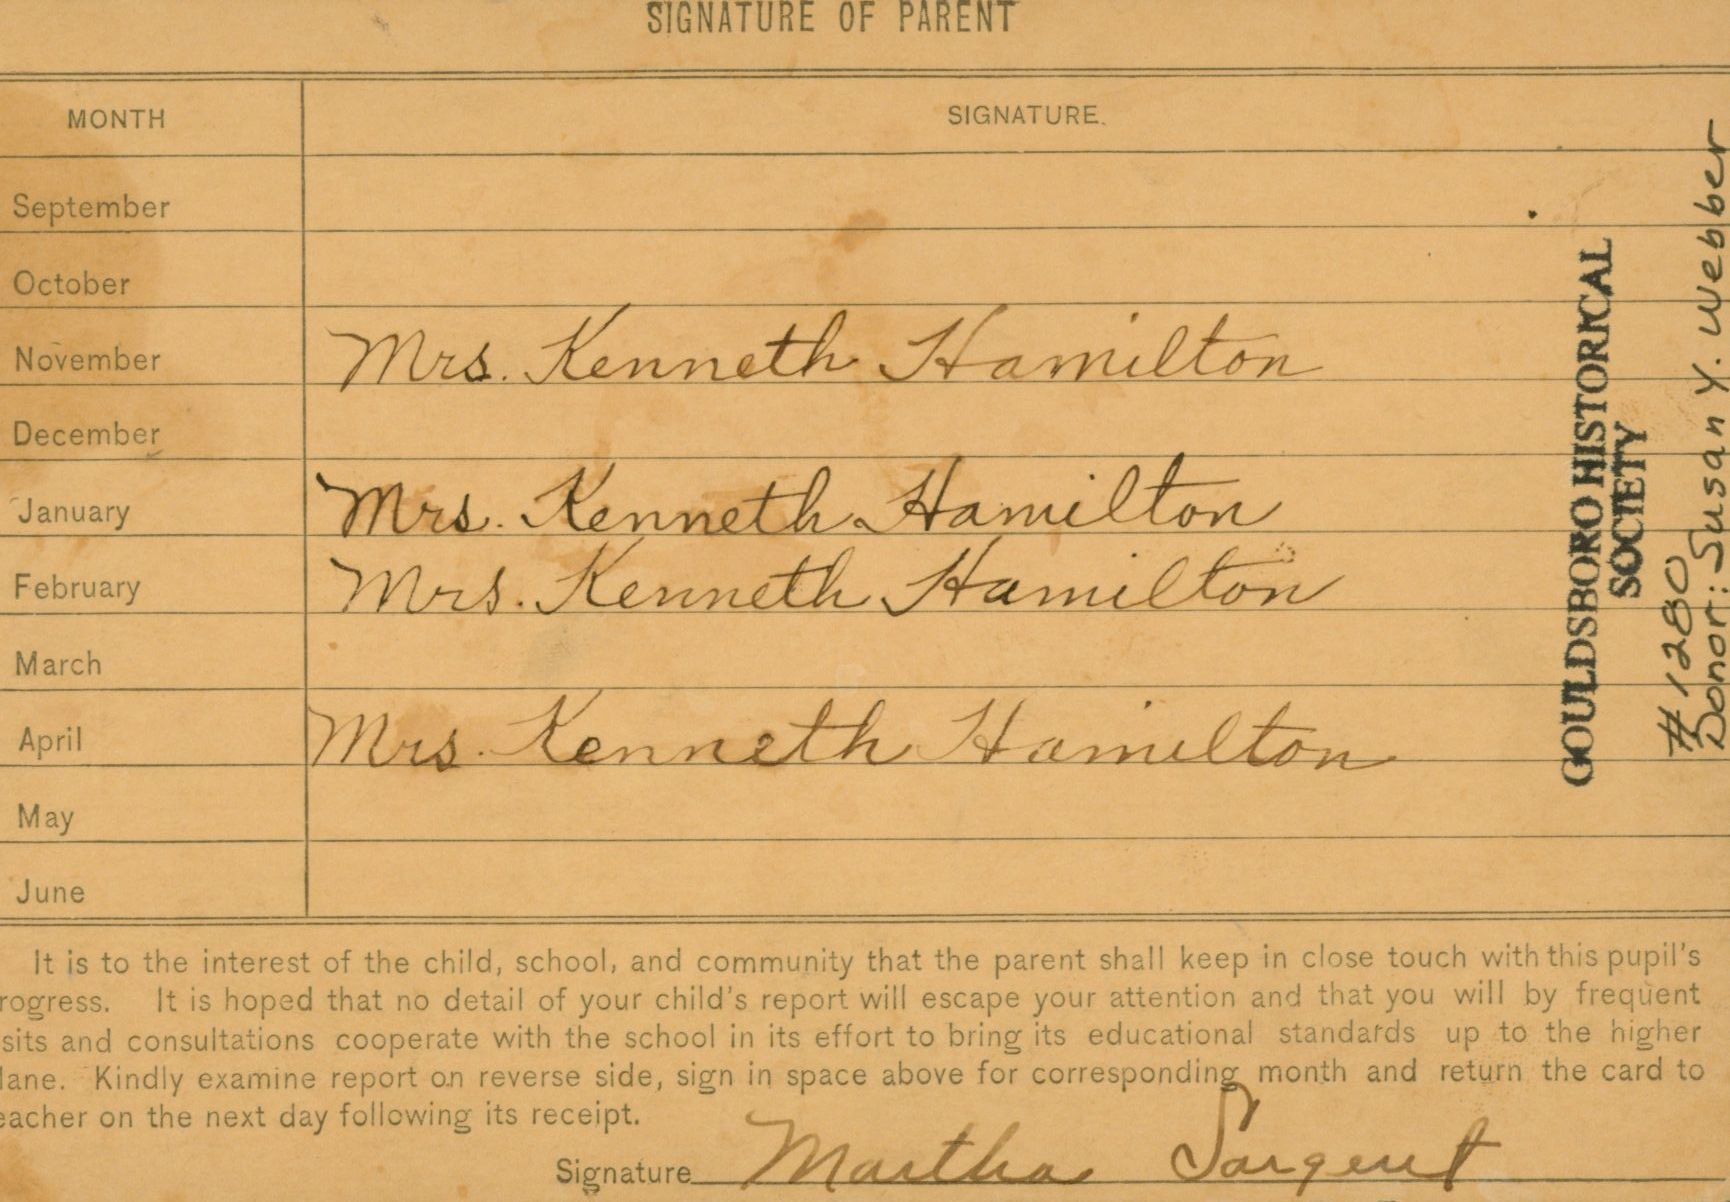 SIGNATURE OF PARENT
MONTH SIGNATURE.
September
October
November Mrs. Kenneth Hamilton
December
January Mrs. Kenneth Hamilton
February Mrs. Kenneth Hamilton
March
April Mrs. Kenneth Hamilton
May
June
It is to the interest of the child, school, and community that the parent shall keep in close touch with this pupil's
rogress. It is hoped that no detail of your child's report will escape your attention and that you will by frequent
sits and consultations cooperate with the school in its effort to bring its educational standards up to the higher
lane. Kindly examine report on reverse side, sign in space above for corresponding month and return the card to
eacher on the next day following its receipt.
Signature Martha Sargent
GOULDSBORO HISTORICAL
SOCIETY
#1280
Donor: Susan Y. Webber